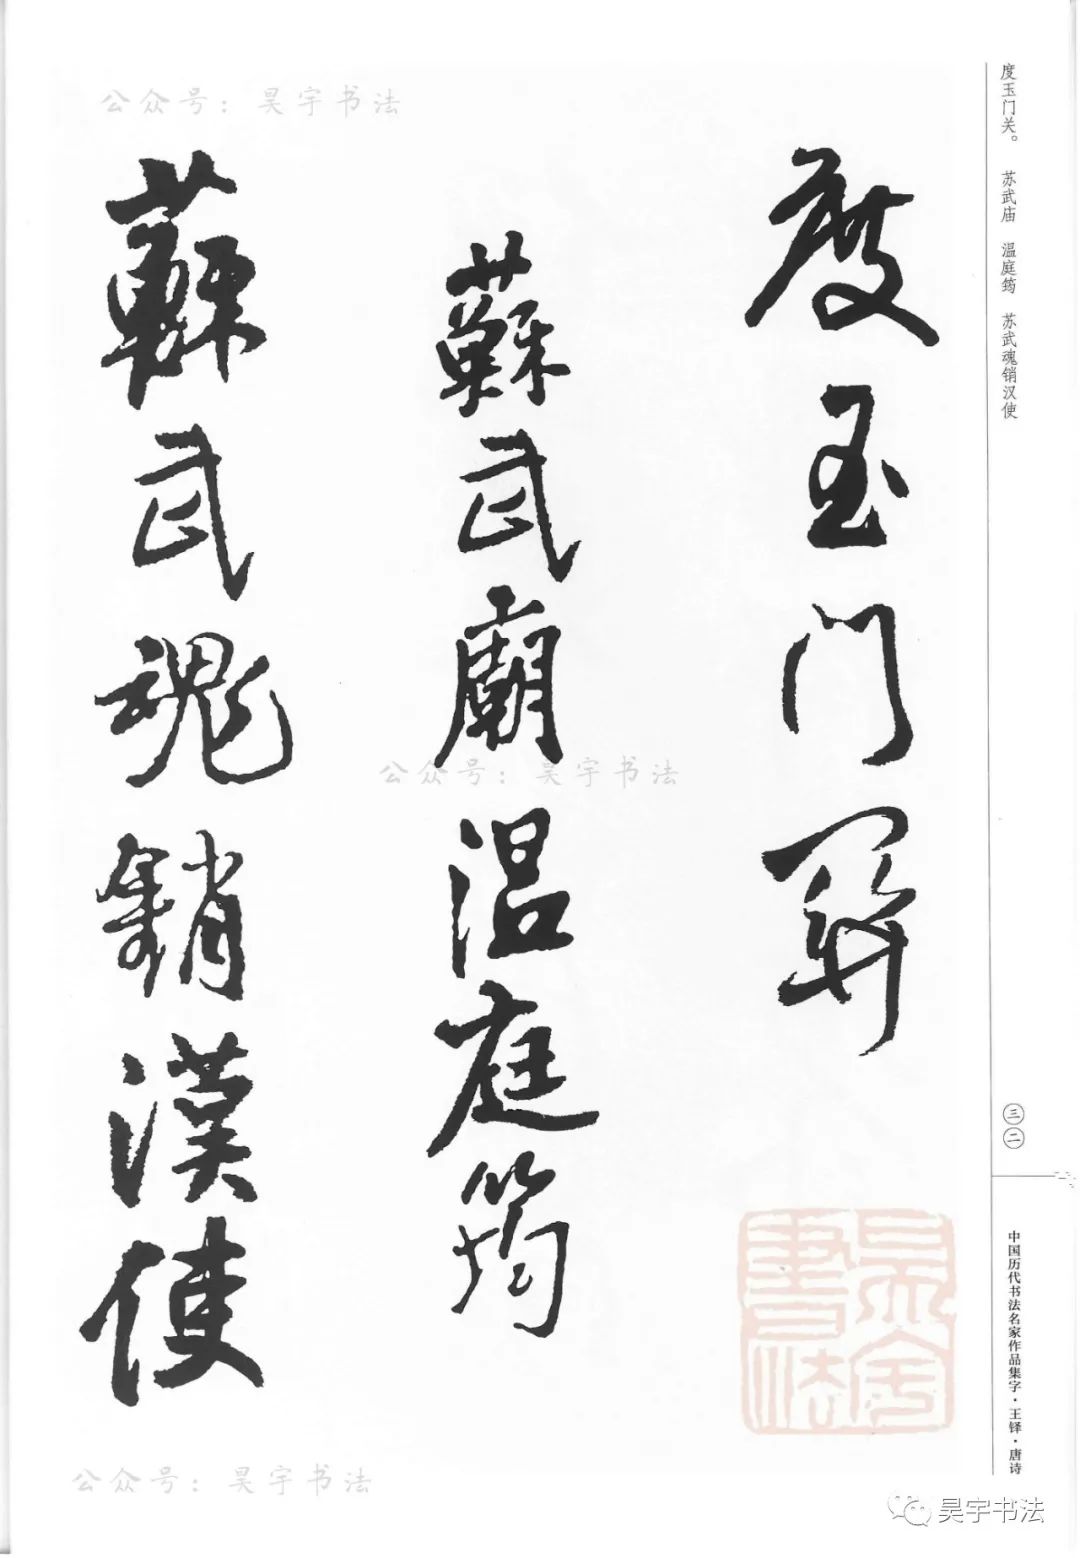 度玉门关。 苏武庙 温庭筠 苏武魂销汉使
三二
中国历代书法名家作品集字·王铎·唐诗
度玉門關
蘇武廟溫庭筠
蘇武魂銷漢使
公众号：昊宇书法
公众号：昊宇书法
公众号：昊宇书法
昊宇書法
昊宇书法